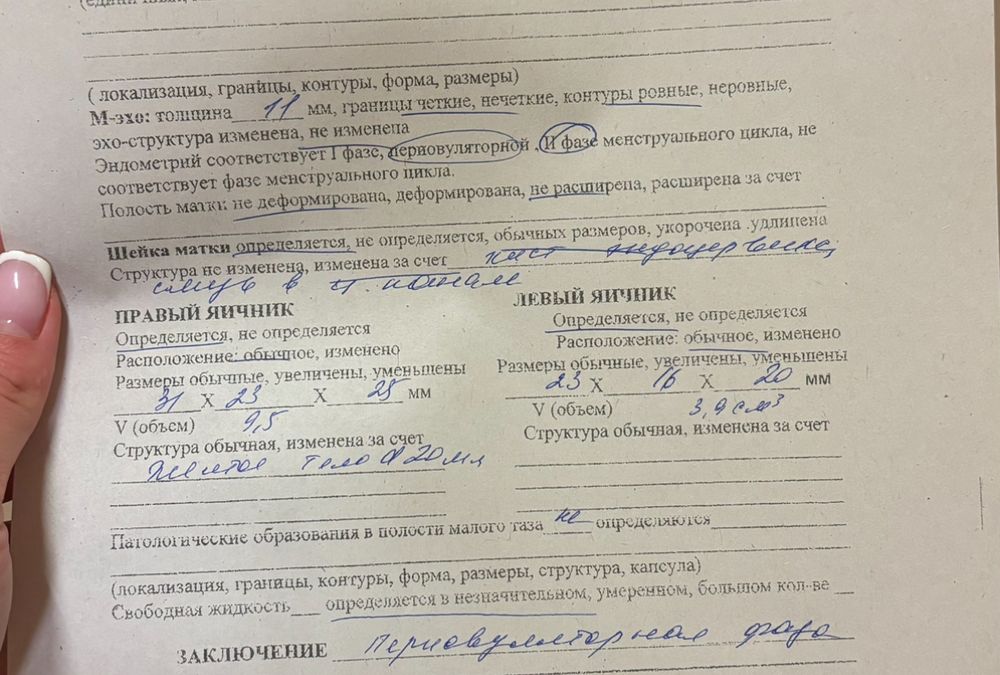 ( локализация, границы, контуры, форма, размеры)
М-эхо: толщина 11 мм, границы четкие, нечеткие, контуры ровные, неровные,
эхо-структура изменена, не изменена
Эндометрий соответствует I фазе, периовуляторной , II фазе менструального цикла, не
соответствует фазе менструального цикла.
Полость матки не деформирована, деформирована, не расширена, расширена за счет
Шейка матки определяется, не определяется, обычных размеров, укорочена .удлинена
Структура не изменена, изменена за счет кист эндоцервикса,
слизь в ц. канале
ПРАВЫЙ ЯИЧНИК
Определяется, не определяется
Расположение: обычное, изменено
Размеры обычные, увеличены, уменьшены
31 X 23 X 25 мм
V (объем) 9,5
Структура обычная, изменена за счет
Желтое тело d 20мм
ЛЕВЫЙ ЯИЧНИК
Определяется, не определяется
Расположение: обычное, изменено
Размеры обычные, увеличены, уменьшены
23 X 16 X 20 мм
V (объем) 3,9 см³
Структура обычная, изменена за счет
Патологические образования в полости малого таза не определяются
(локализация, границы, контуры, форма, размеры, структура, капсула)
Свободная жидкость определяется в незначительном, умеренном, большом кол-ве
ЗАКЛЮЧЕНИЕ Периовуляторная фаза